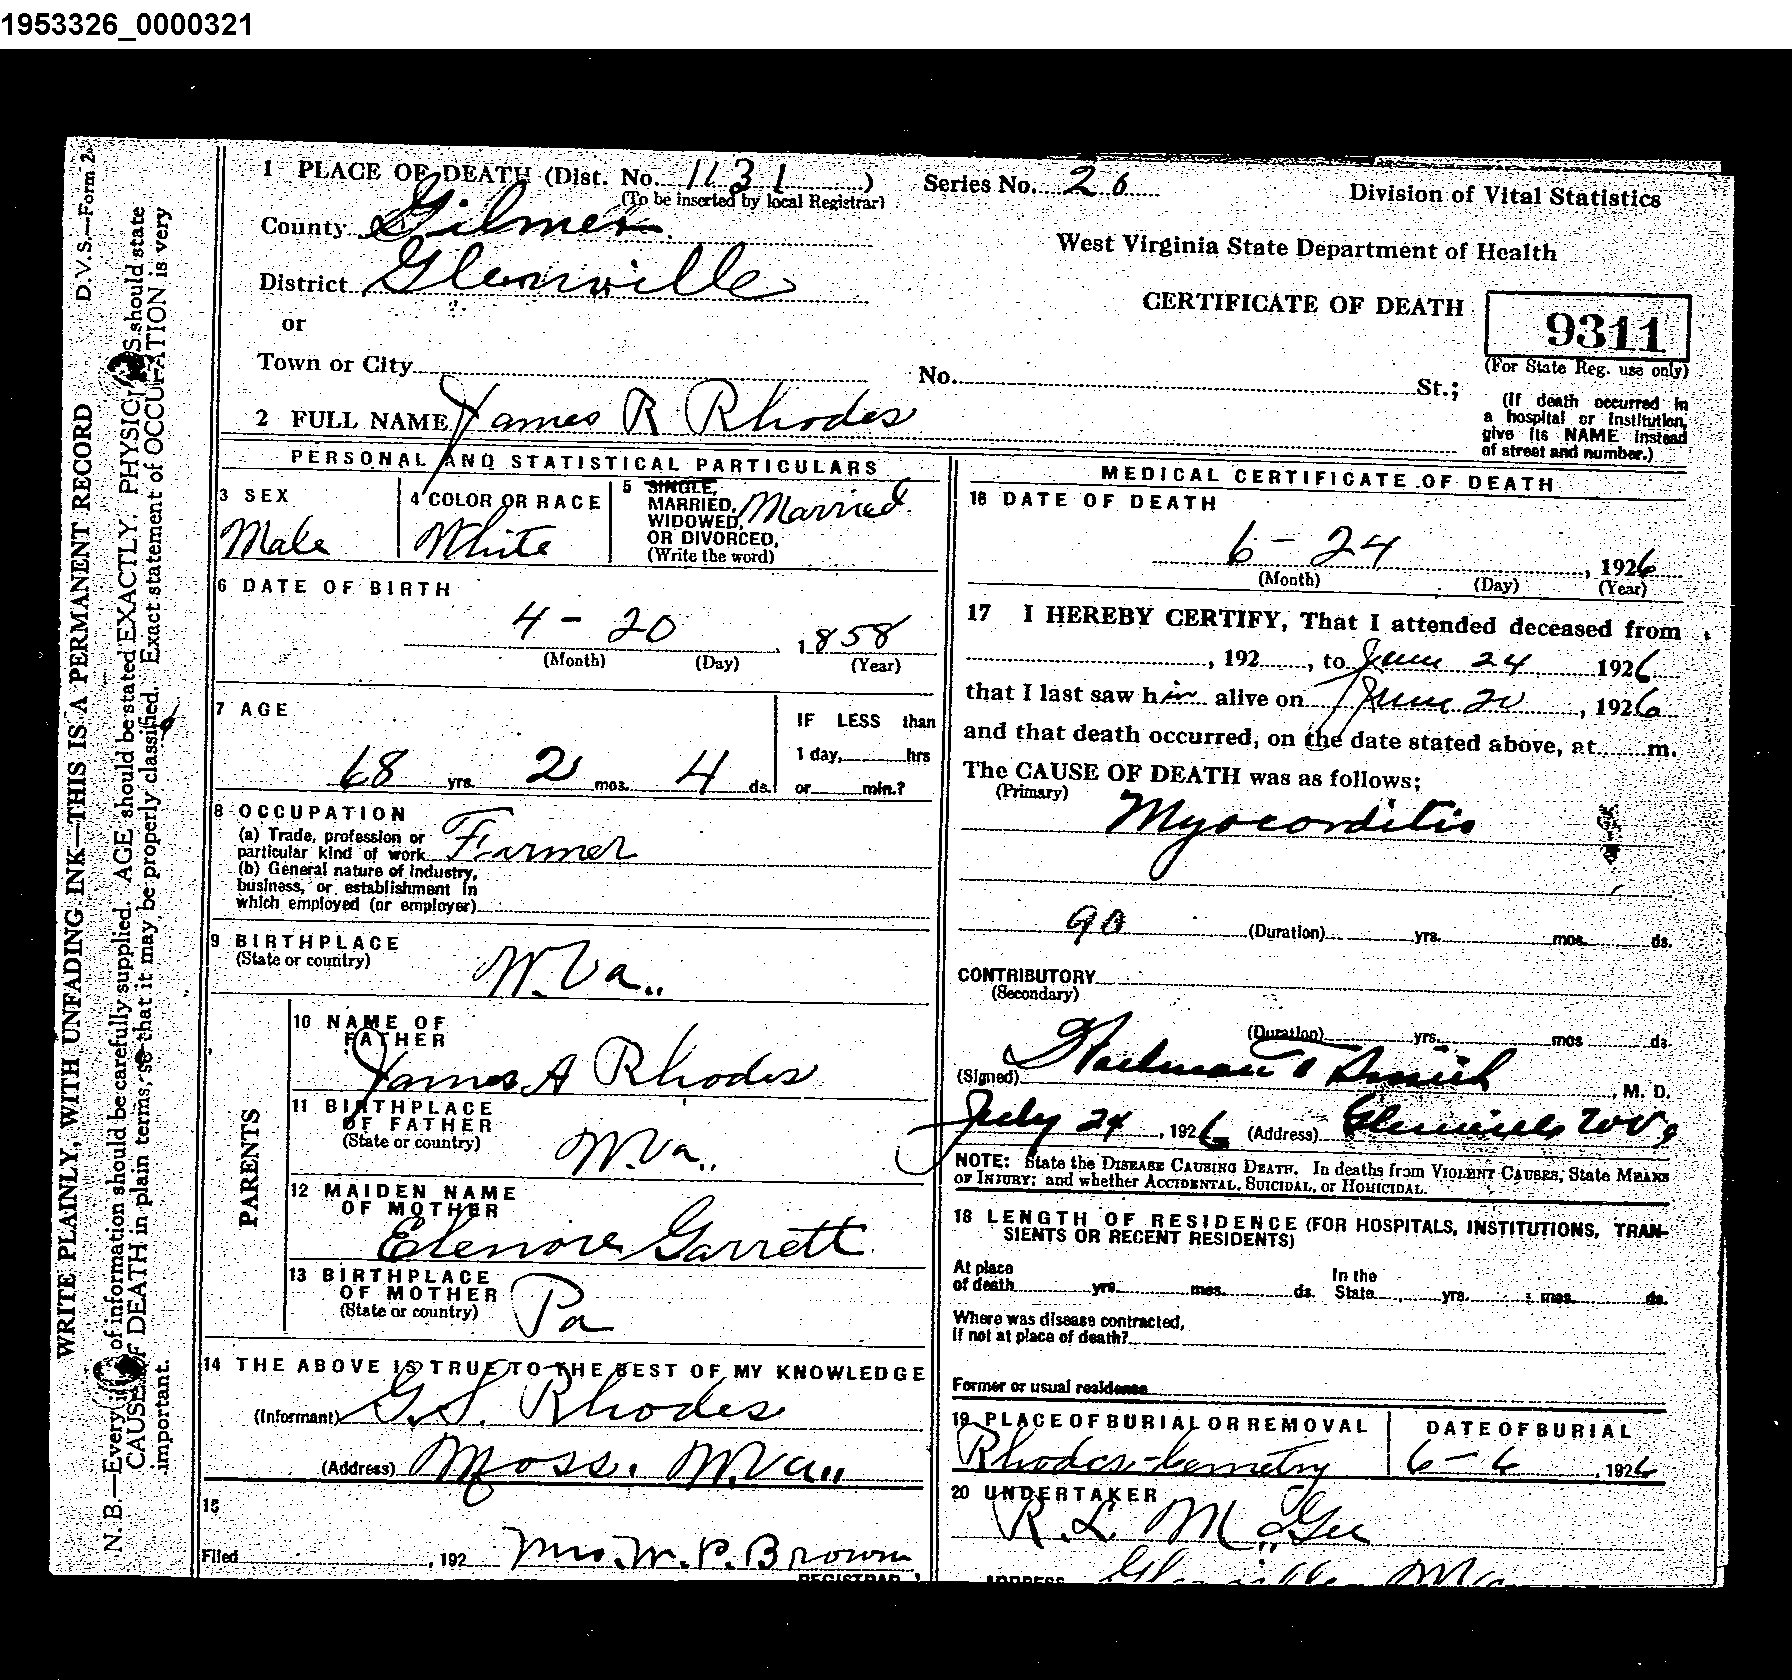 1953326_0000321
D.V.S.—Form 2
WRITE PLAINLY, WITH UNFADING INK—THIS IS A PERMANENT RECORD
N. B.—Every of information should be carefully supplied. AGE should be stated EXACTLY. PHYSICI S should state
CAUSE OF DEATH in plain terms, so that it may be properly classified. Exact statement of OCCUPATION is very
important.
1 PLACE OF DEATH (Dist. No. 1131 )
(To be inserted by local Registrar)
Series No. 26
Division of Vital Statistics
County Gilmer
West Virginia State Department of Health
District Glenville
CERTIFICATE OF DEATH
9311
(For State Reg. use only)
or
Town or City
No. St.;
(If death occurred in
a hospital or institution,
give its NAME instead
of street and number.)
2 FULL NAME James R Rhodes
PERSONAL AND STATISTICAL PARTICULARS
3 SEX
Male
4 COLOR OR RACE
White
5 SINGLE,
MARRIED,
WIDOWED,
OR DIVORCED,
(Write the word)
Married
6 DATE OF BIRTH
4 - 20 , 1858
(Month) (Day) (Year)
7 AGE
68 yrs. 2 mos. 4 ds.
IF LESS than
1 day, hrs
or min.?
8 OCCUPATION
(a) Trade, profession or
particular kind of work Farmer
(b) General nature of industry,
business, or establishment in
which employed (or employer)
9 BIRTHPLACE
(State or country)
W.Va..
PARENTS
10 NAME OF
FATHER
James A Rhodes
11 BIRTHPLACE
OF FATHER
(State or country)
W.Va..
12 MAIDEN NAME
OF MOTHER
Elenore Garrett
13 BIRTHPLACE
OF MOTHER
(State or country)
Pa
14 THE ABOVE IS TRUE TO THE BEST OF MY KNOWLEDGE
(Informant) G.S. Rhodes
(Address) Moss. W.Va..
15
Filed , 192 Mrs. W. P. Brown
REGISTRAR
MEDICAL CERTIFICATE OF DEATH
16 DATE OF DEATH
6 - 24 , 1926
(Month) (Day) (Year)
17 I HEREBY CERTIFY, That I attended deceased from
, 192 , to June 24 1926
that I last saw him alive on June 20 , 1926
and that death occurred, on the date stated above, at m.
The CAUSE OF DEATH was as follows;
(Primary)
Myocorditis
90 (Duration) yrs. mos. ds.
CONTRIBUTORY
(Secondary)
(Duration) yrs. mos ds.
(Signed) Smith , M. D.
July 24 , 1926 (Address) Glenville W Va
NOTE: State the DISEASE CAUSING DEATH. In deaths from VIOLENT CAUSES, State MEANS
OF INJURY; and whether ACCIDENTAL, SUICIDAL, or HOMICIDAL.
18 LENGTH OF RESIDENCE (FOR HOSPITALS, INSTITUTIONS, TRAN-
SIENTS OR RECENT RESIDENTS)
At place
of death yrs. mos. ds.
In the
State yrs. mos. ds.
Where was disease contracted,
If not at place of death?
Former or usual residence
19 PLACE OF BURIAL OR REMOVAL
Rhodes Cemetry
DATE OF BURIAL
6 - 6 , 1926
20 UNDERTAKER
R. L. McGee
ADDRESS Glenville